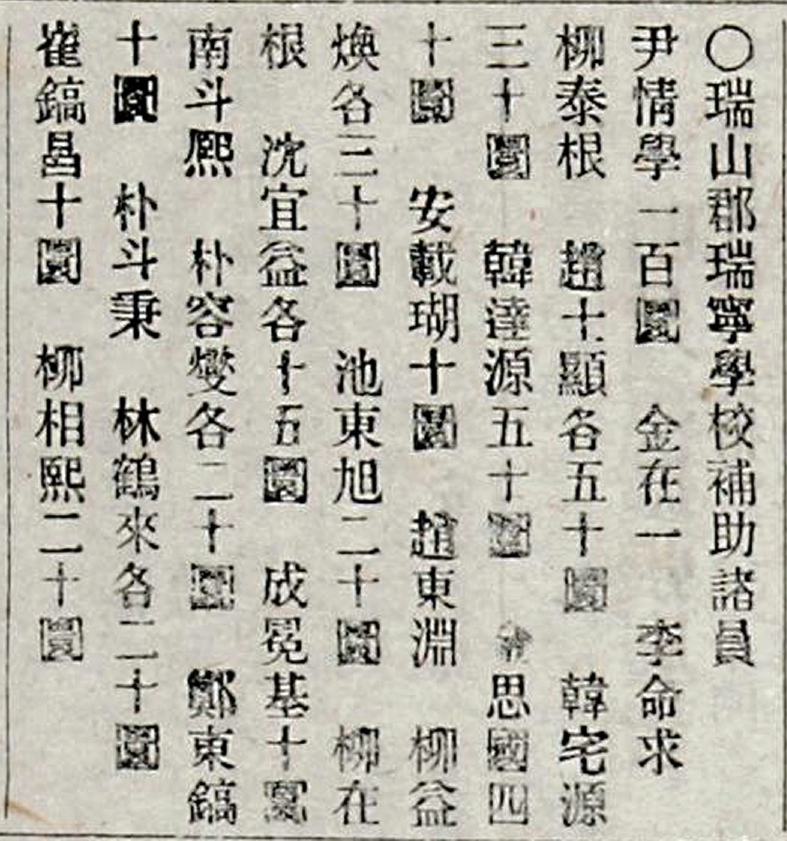 ○瑞山郡瑞寧學校補助諸員
尹情學一百圜 金在一 李命求
柳泰根 趙士顯各五十圜 韓宅源
三十圜 韓達源五十圜 思國四
十圜 安載瑚十圜 趙東淵 柳益
煥各三十圜 池東旭二十圜 柳在
根 沈宜益各十五圜 成冕基十圜
南斗熈 朴容燮各二十圜 鄭東鎬
十圜 朴斗秉 林鶴來各二十圜
崔鎬昌十圜 柳相熙二十圜